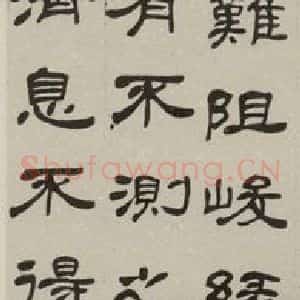 難阻峻
有不測
濟息不得
Shufawang.CN